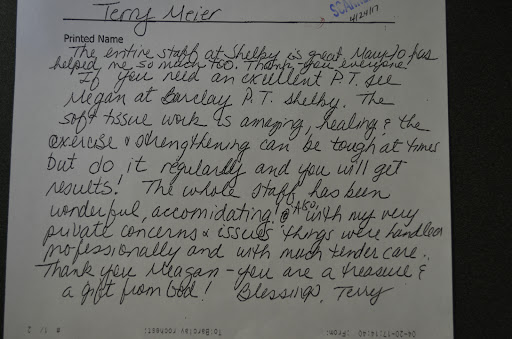 Terry Meier
SCANNED
4/24/17
Printed Name
The entire staff at Shelby is great. Mary Jo has
helped me so much too. Thank you everyone.
If you need an excellent P.T. see
Megan at Barclay P.T. Shelby. The
soft tissue work is amazing, healing & the
exercise & strengthening can be tough at times
but do it regularly and you will get
results! The whole staff has been
wonderful, accomidating! Also, with my very
private concerns & issues things were handled
professionally and with much tender care.
Thank you Meagan - you are a treasure &
a gift from God! Blessings, Terry
04-20-'17 14:40 From:
To: Barclay
# 1/ 2